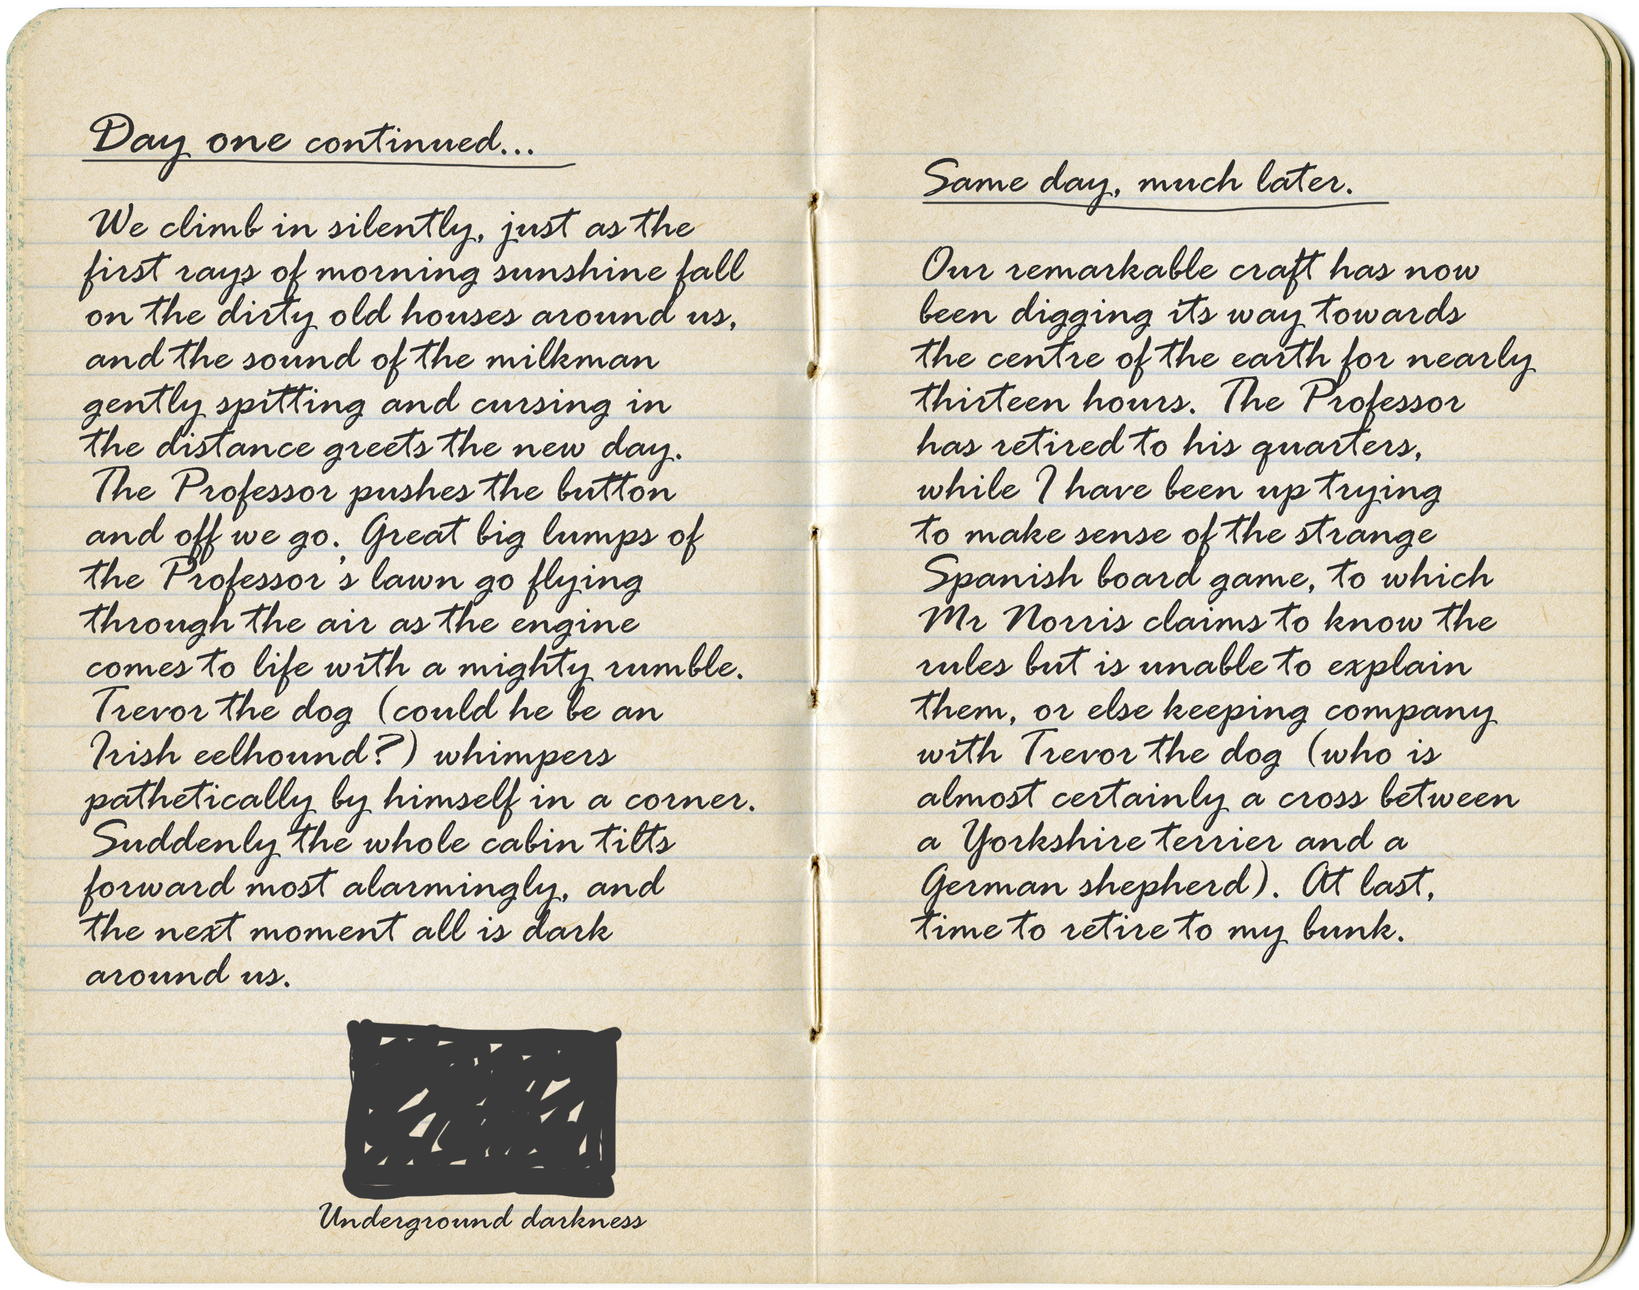 Day one continued...
We climb in silently, just as the
first rays of morning sunshine fall
on the dirty old houses around us,
and the sound of the milkman
gently spitting and cursing in
the distance greets the new day.
The Professor pushes the button
and off we go. Great big lumps of
the Professor's lawn go flying
through the air as the engine
comes to life with a mighty rumble.
Trevor the dog (could he be an
Irish eelhound?) whimpers
pathetically by himself in a corner.
Suddenly the whole cabin tilts
forward most alarmingly, and
the next moment all is dark
around us.
Underground darkness
Same day, much later.
Our remarkable craft has now
been digging its way towards
the centre of the earth for nearly
thirteen hours. The Professor
has retired to his quarters,
while I have been up trying
to make sense of the strange
Spanish board game, to which
Mr Norris claims to know the
rules but is unable to explain
them, or else keeping company
with Trevor the dog (who is
almost certainly a cross between
a Yorkshire terrier and a
German shepherd). At last,
time to retire to my bunk.